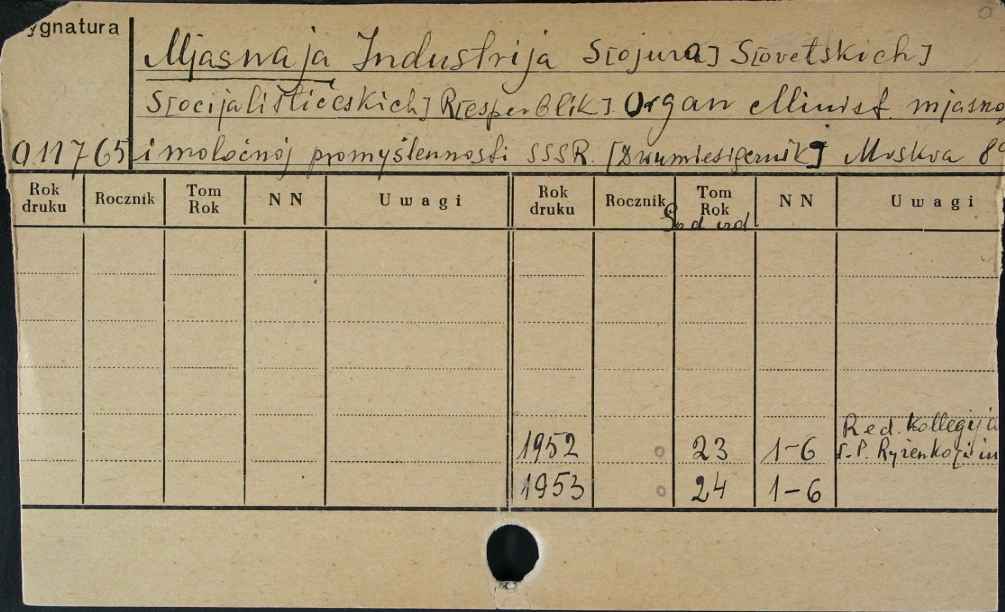 ygnatura
Mjasnaja Industrija S[ojuza] S[ovetskich]
S[ocijalističeskich] R[espublik]. Organ Minist. mjasno
011765 i moločnoj promyšlennosti SSSR. [Dwumiesięcznik] Moskva 8°
Rok druku Rocznik Tom Rok NN Uwagi Rok druku Rocznik Tom Rok NN Uwagi
Red. Kollegija
1952 23 1-6 i in
1953 24 1-6